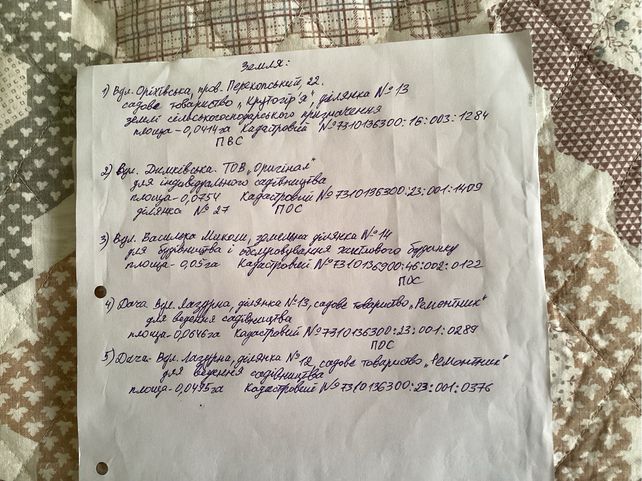 Земля:
1) Вул. Оріхівська, пров. Перекопський, 22.
садове товариство „Крутогір'я", ділянка №13
землі сільськогосподарського призначення
площа-0,0414га Кадастровий №7310136300:16:003:1284
ПВС
2) Вул. Димківська. ТОВ „Оригінал"
для індивідуального садівництва
площа-0,0754 Кадастровий №7310136300:23:001:1409
ділянка № 27 ПОС
3) Вул. Василюка Миколи, земельна ділянка №14
для будівництва і обслуговування житлового будинку
площа-0,05га Кадастровий №7310136300:46:002:0122
ПОС
4) Дача. Вул. Лазурна, ділянка №13, садове товариство „Ремонтник"
для ведення садівництва
площа-0,0646га Кадастровий №7310136300:23:001:0289
ПОС
5) Дача. Вул. Лазурна, ділянка №12, садове товариство „Ремонтник"
для ведення садівництва
площа-0,0495га Кадастровий №7310136300:23:001:0376